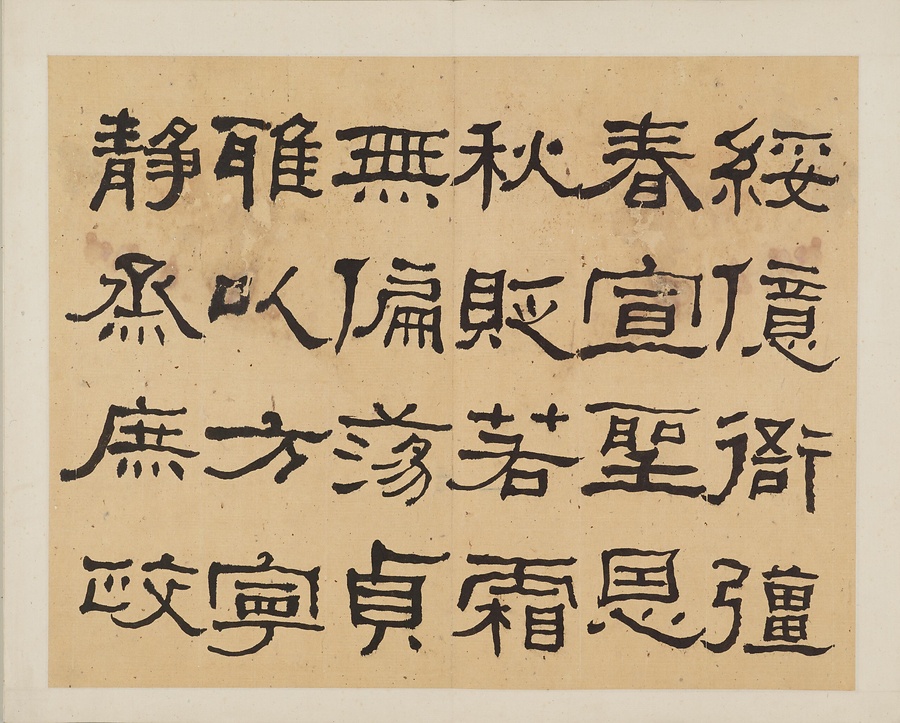 綏億衙彊
春宣聖恩
秋貶若霜
無偏蕩貞
雅以方寧
靜烝庶政